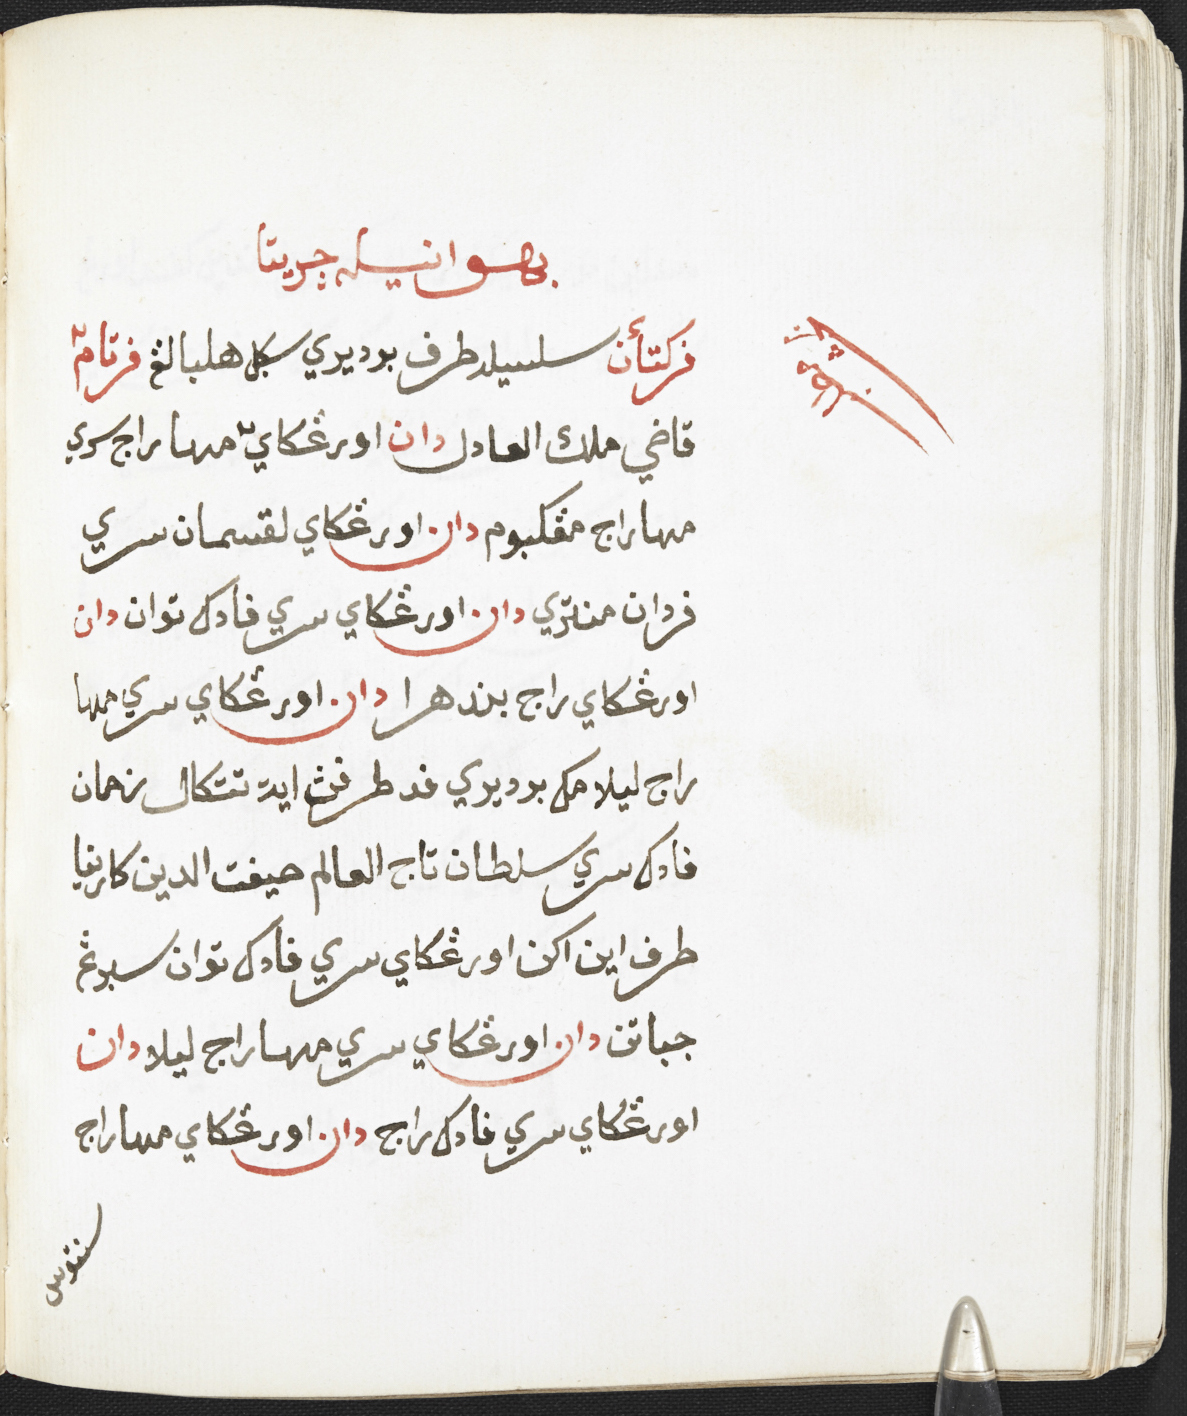 بهوا انيله چريتا
فركتأن سلسيله طرف بوديري سكل هلبالڠ فرتام٢
قاضي ملك العادل دان اورڠكاي٢ مهاراج سري
مهاراج مڠكبوم دان اورڠكاي لقسمان سري
فردان منتري دان اورڠكاي سري فادك توان دان
اورڠكاي راج بندهرا دان اورڠكاي سري مها
راج ليلا مك بوديري فد طرفڽ ايت تتكال زمان
فادك سري سلطان تاج العالم صيفت الدين كارنيا
طرف اين اكن اورڠكاي سري فادك توان سبوڠ
جباتن دان اورڠكاي سري مهاراج ليلا دان
اورڠكاي سري فادك راج دان اورڠكاي مهاراج